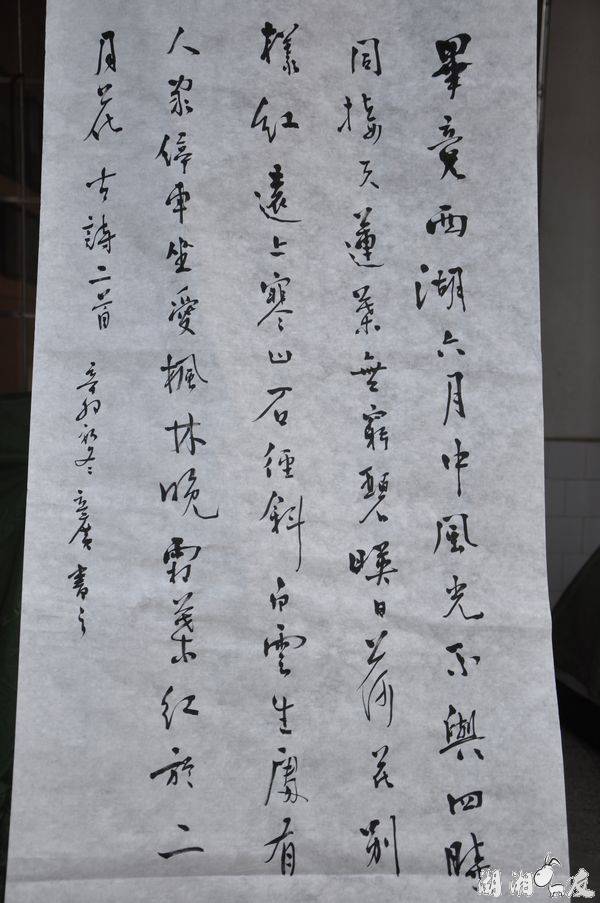 畢竟西湖六月中風光不與四時
同接天蓮葉無窮碧映日荷花別
樣紅遠上寒山石徑斜白雲生處有
人家停車坐愛楓林晚霜葉紅於二
月花古詩二首
書之
湖湘
友